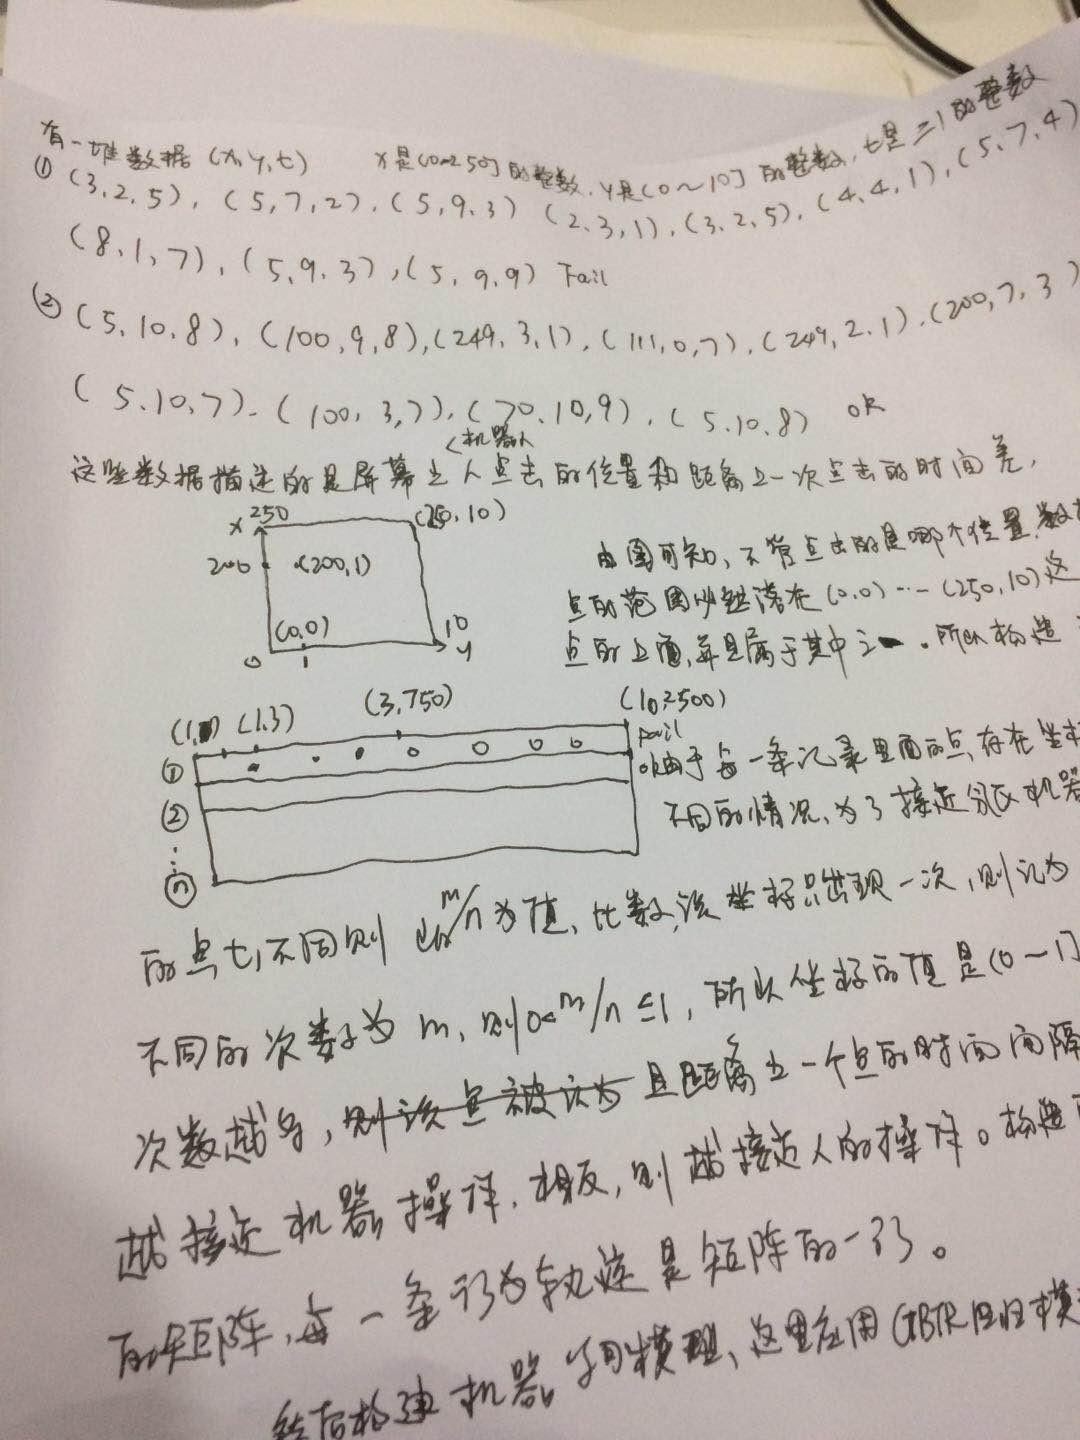 有一堆数据 (x, y, t) x是(0~250]的整数, y是(0~10]的整数, t是≥1的整数
① (3,2,5), (5,7,2), (5,9,3) (2,3,1), (3,2,5), (4,4,1), (5,7,4)
(8,1,7), (5,9,3), (5,9,9) Fail
② (5,10,8), (100,9,8), (249,3,1), (111,0,7), (249,2,1), (200,7,3)
(5,10,7), (100,3,7), (70,10,9), (5,10,8) ok
<机器人
这些数据描述的是屏幕上人点击的位置和距离上一次点击的时间差,
x 250 (250,10)
200 (200,1)
(0,0) 10
0 1 y
由图可知, 不管点击的是哪个位置,
点的范围必然落在(0,0)…(250,10)这
点的上面, 并且属于其中之一. 所以构造
(1,3) (3,750) (10,2500)
① fail
ok 由于每一条记录里面的点存在坐标
② 不同的情况, 为了接近分区机器
⋮
ⓝ
的点t不同则取m/n为值, 比数该坐标只出现一次, 则记为
不同的次数为m, 则0<m/n≤1, 所以坐标的值是(0~1]
次数越多, 则该点被认为且距离上一个点的时间间隔
越接近机器操作, 相反, 则越接近人的操作。构造
的矩阵, 每一条行为轨迹是矩阵的一行。
然后构建机器学习模型, 这里应用GBTR回归模